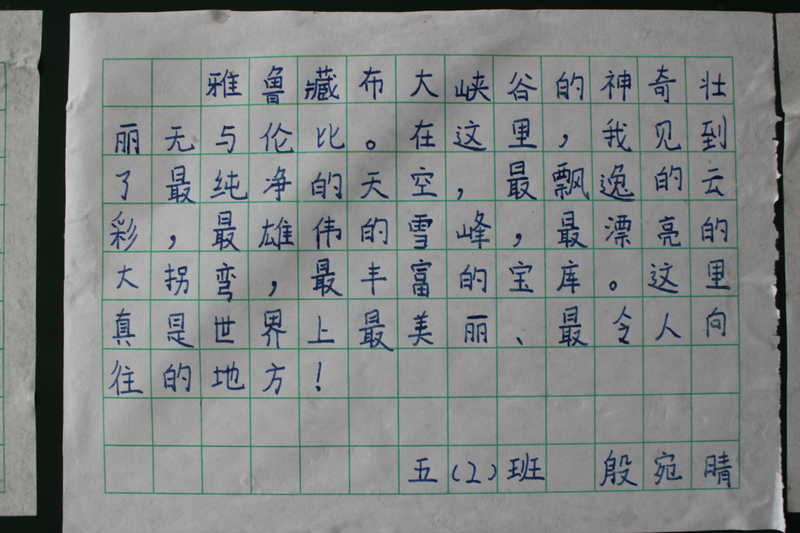 雅鲁藏布大峡谷的神奇壮
丽无与伦比。在这里，我见到
了最纯净的天空，最飘逸的云
彩，最雄伟的雪峰，最漂亮的
大拐弯，最丰富的宝库。这里
真是世界上最美丽、最令人向
往的地方！
五（2）班 殷宛晴